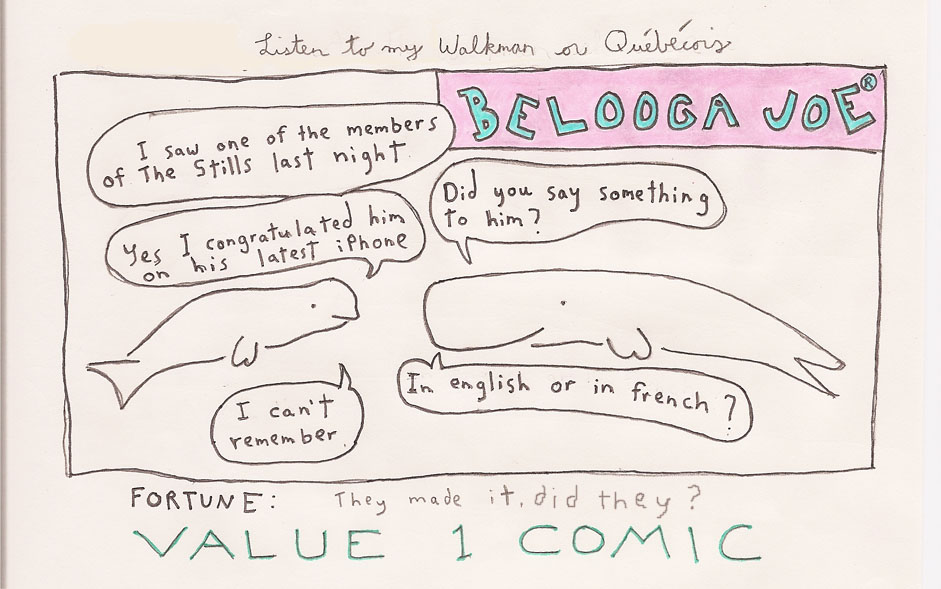 Listen to my Walkman or Québécois
BELOOGA JOE®
I saw one of the members
of The Stills last night
Did you say something
to him?
Yes I congratulated him
on his latest iPhone
In english or in french?
I can't
remember
FORTUNE: They made it, did they?
VALUE 1 COMIC